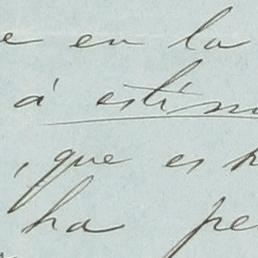 e en la
á estim
, que es h
ha pe